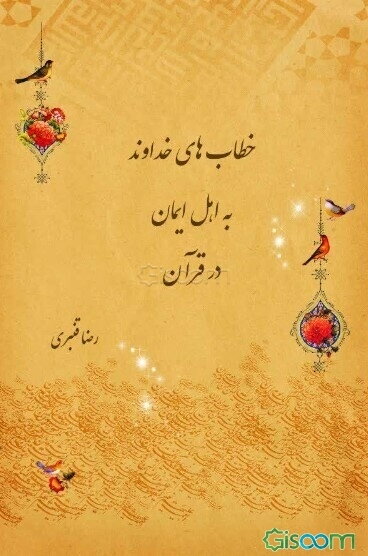 خطاب های خداوند
به اهل ایمان
در قرآن
رضا قنبری
Gisoom